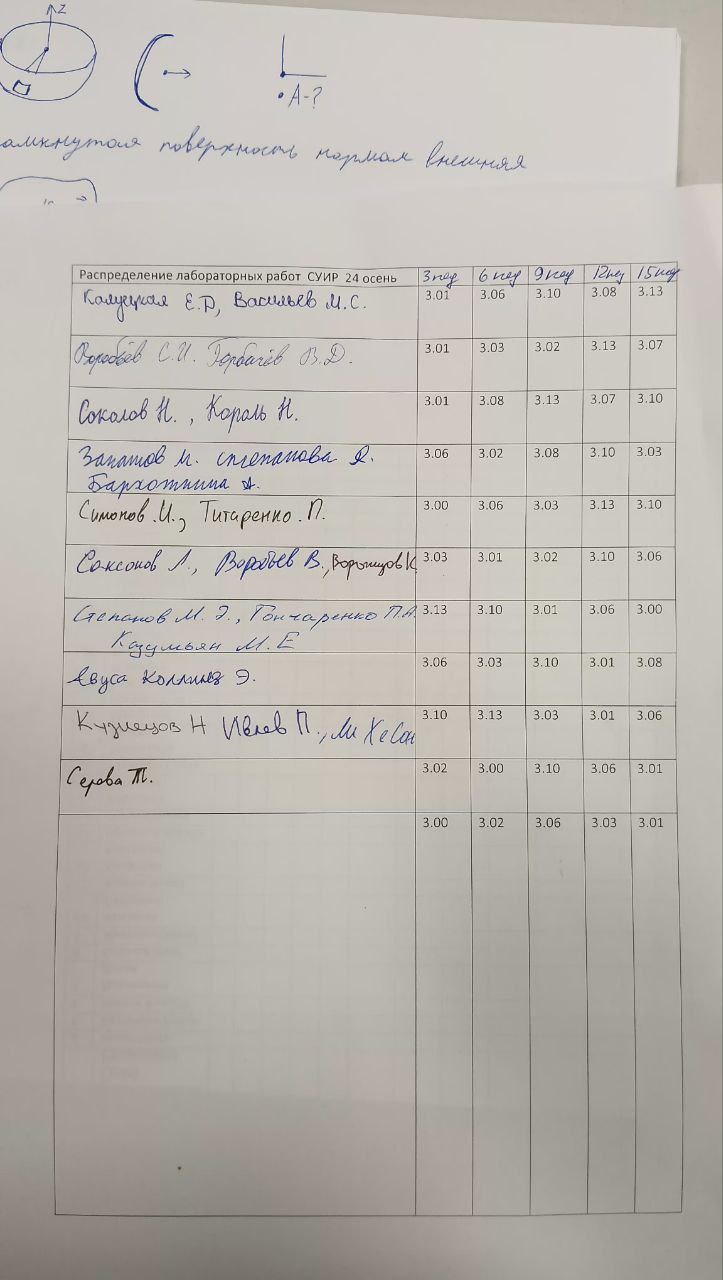 Z
A-?
амкнутая поверхность нормал внешняя
Распределение лабораторных работ СУИР 24 осень 3 нед 6 нед 9 нед 12 нед 15 нед
Калуцкая Е.Д, Васильев М.С. 3.01 3.06 3.10 3.08 3.13
Воробьёв С.И. Горбачёв В.Д. 3.01 3.03 3.02 3.13 3.07
Соколов Н. , Король Н. 3.01 3.08 3.13 3.07 3.10
М. Степанова Я. 3.06 3.02 3.08 3.10 3.03
Бархоткина А.
Симонов И., Титаренко П. 3.00 3.06 3.03 3.13 3.10
Саксонов Л., Воробьев В., К 3.03 3.01 3.02 3.10 3.06
Степанов М. Э., Гончаренко П.А. 3.13 3.10 3.01 3.06 3.00
М. Е
Коллинз Э. 3.06 3.03 3.10 3.01 3.08
Кузнецов Н Ивлев П., Ли Хе Сон 3.10 3.13 3.03 3.01 3.06
Серова Т. 3.02 3.00 3.10 3.06 3.01
3.00 3.02 3.06 3.03 3.01